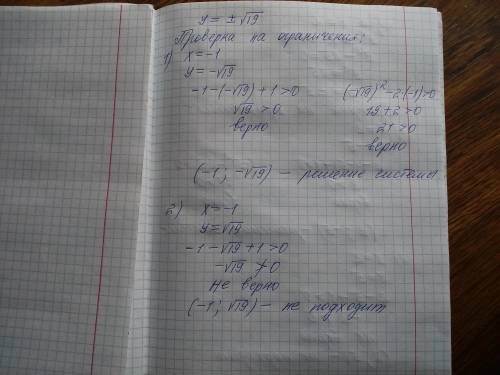 y = ±√19
Проверка на ограничения:
1) x = -1
y = -√19
-1-(-√19)+1>0 (-√19)² -2·(-1)>0
√19 >0 19+2>0
верно 21>0
верно
(-1; -√19) — решение системы
2) x = -1
y = √19
-1-√19+1>0
-√19 ≯ 0
не верно
(-1; √19) — не подходит